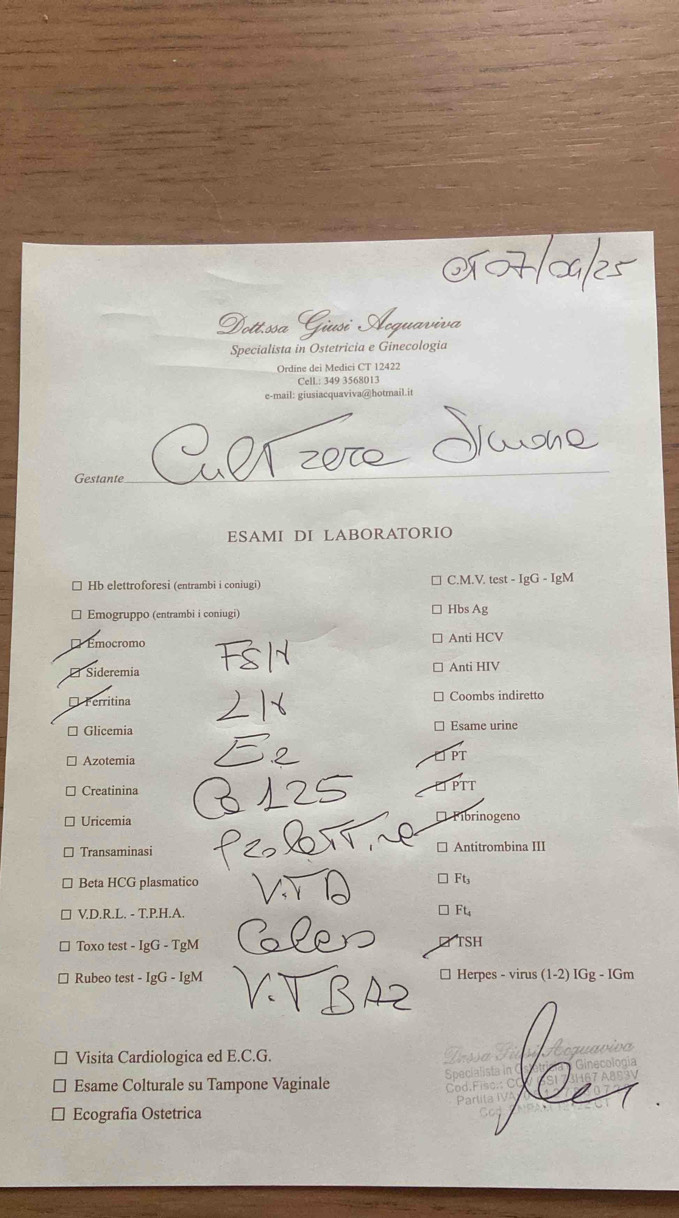 CT 07/04/25
Dott.ssa Giusi Acquaviva
Specialista in Ostetricia e Ginecologia
Ordine dei Medici CT 12422
Cell.: 349 3568013
e-mail: giusiacquaviva@hotmail.it
Gestante Cultrera Simona
ESAMI DI LABORATORIO
Hb elettroforesi (entrambi i coniugi)
Emogruppo (entrambi i coniugi)
Emocromo
Sideremia
Ferritina
Glicemia
Azotemia
Creatinina
Uricemia
Transaminasi
Beta HCG plasmatico
V.D.R.L. - T.P.H.A.
Toxo test - IgG - TgM
Rubeo test - IgG - IgM
FSH
LH
E2
Ca 125
Prolattina
Vit D
Calcio
Vit B12
C.M.V. test - IgG - IgM
Hbs Ag
Anti HCV
Anti HIV
Coombs indiretto
Esame urine
PT
PTT
Fibrinogeno
Antitrombina III
Ft₃
Ft₄
TSH
Herpes - virus (1-2) IGg - IGm
Visita Cardiologica ed E.C.G.
Esame Colturale su Tampone Vaginale
Ecografia Ostetrica
D.ssa Giusi Acquaviva
Specialista in Ostetricia e Ginecologia
Cod.Fisc.:
Partita IVA